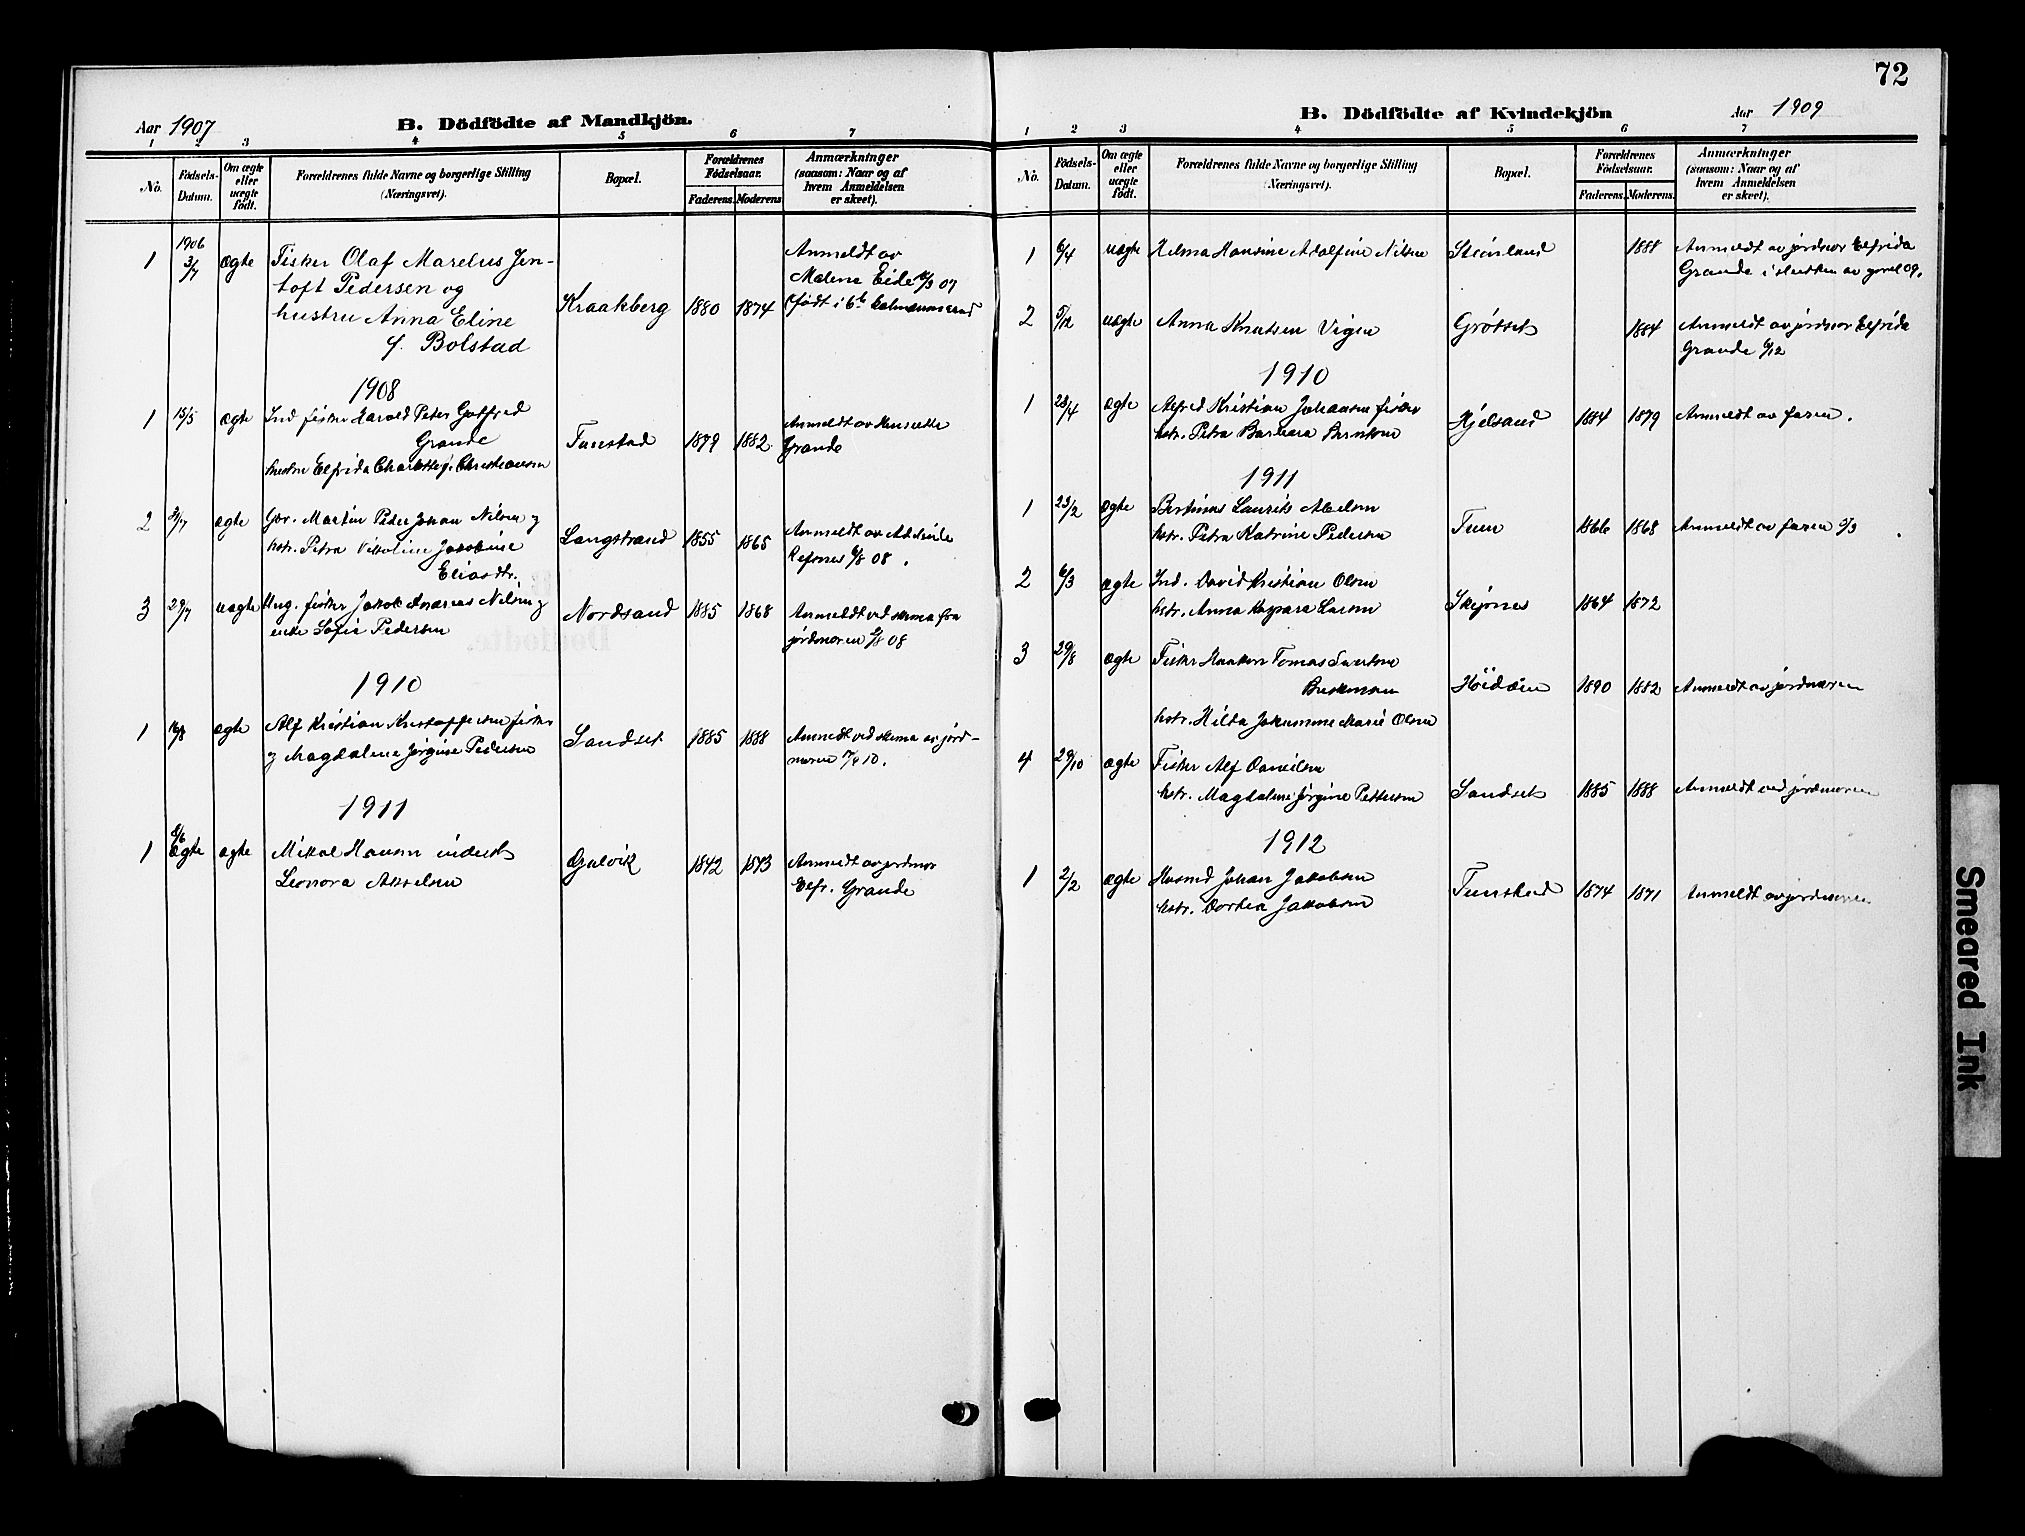 72
Aar 1907
B. Dödfödte af Mandkjön.
1 2 3 4 5 6 7
No.
Födsels-Datum.
Om ægte eller uægte födt.
Forældrenes fulde Navne og borgerlige Stilling
(Næringsvei).
Bopæl.
Forældrenes Födselsaar.
Faderens. Moderens
Anmærkninger
(saasom: Naar og af
hvem Anmeldelsen
er skeet).
1 1906 3/7 ægte Fisker Olaf Marelius Jen-
toft Pedersen og
hustru Anna Eline
f. Bolstad
Kraakberg 1880 1874
Anmeldt av
Malene Eide 07
(født i 6te
1908
1 15/5 ægte Ind fisker Harald Peter Gotfred
Grande
hustru Elfrida Charlotte f. Christiansen
Tunstad 1879 1882
Anmeldt av Henriette
Grande
2 ægte Gbr. Martin Peder Johan Nilsen og
hstr. Petra Jakobine
Eliasdtr.
Langstrand 1855 1865
Anmeldt av
Refsnes 6/8 08.
3 29/7 uægte Ung. fisker Jakob Andreas Nilsen og
enke Sofie Pedersen
Nordsand 1885 1868
Anmeldt ved skema fra
jordmoren 08
1910
1 ægte Alf Kristian Kristoffersen fisker
og Magdalene Jørgine Pedersen
Sandset 1885 1888
Anmeldt ved skema av jord-
moren 10.
1911
1 8/6 ægte ægte Mikal Hansen inderst
Leonora Akselsen
Gulvik 1842 1873
Anmeldt av jordmor
Elfr. Grande
B. Dödfödte af Kvindekjön
Aar 1909
1 2 3 4 5 6 7
No.
Födsels-Datum.
Om ægte eller uægte födt.
Forældrenes fulde Navne og borgerlige Stilling
(Næringsvei).
Bopæl.
Forældrenes Födselsaar.
Faderens. Moderens.
Anmærkninger
(saasom: Naar og af
hvem Anmeldelsen
er skeet).
1 6/4 uægte Hilma Hansine Adolfine Nilsen Steinland 1888 Anmeldt av jordmor Elfrida
Grande i slutten av april 09.
2 5/12 uægte Anna Knutsen Vigen Grötset 1884 Anmeldt av jordmor Elfrida
Grande 6/12
1910
1 28/4 ægte Alfred Kristian Johansen fisker
hstr. Petra Barbara Berntsen
Hjelsand 1884 1879 Anmeldt av faren.
1911
1 23/2 ægte Bertinus Laurits Abelsen
hstr. Petra Katrine Pedersen
Tuen 1866 1868 Anmeldt av faren 5/3
2 6/3 ægte Ind. David Kristian Olsen
hstr. Anna Kaspara Larsen
Skjönes 1864 1872
3 29/8 ægte Fisker Haakon Tomas
hstr. Hilda Johanna Marie Olsen
1890 1882 Anmeldt av jordmoren
4 29/10 ægte Fisker Alf Danielsen
hstr. Magdalene Jörgine Pettersen
Sandset 1885 1888 Anmeldt ved jordmoren
1912
1 2/2 ægte Husmd Johan Jakobsen
hstr. Dortea Jakobsen
Tunstad 1874 1871 Anmeldt av jordmoren
Smeared Ink